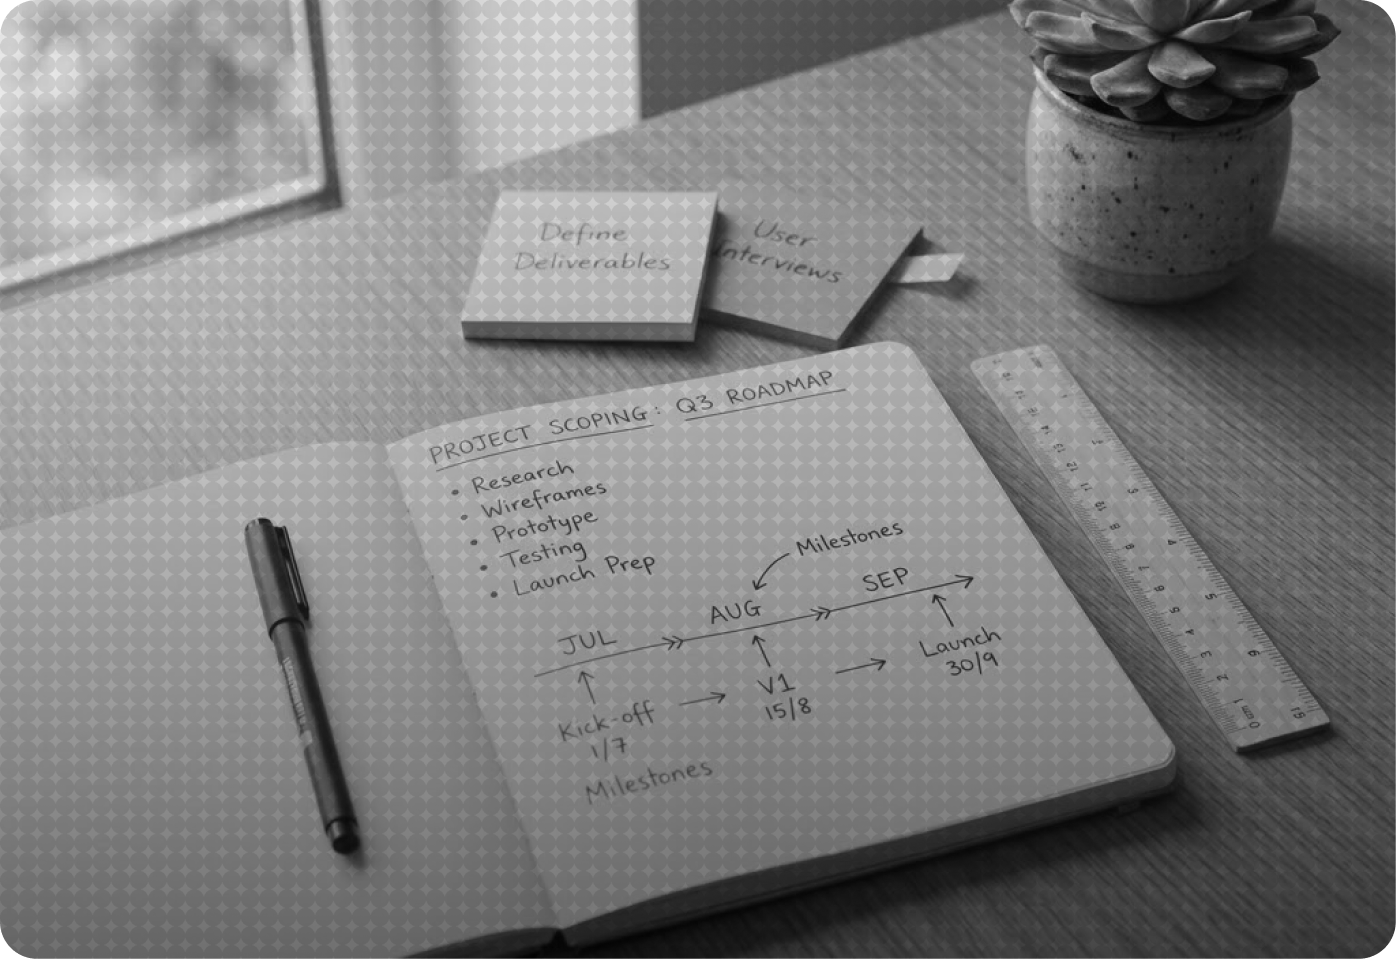 Define
Deliverables
User
interviews
PROJECT SCOPING: Q3 ROADMAP
• Research
• Wireframes
• Prototype
• Testing
• Launch Prep
Milestones
JUL
AUG
SEP
Kick-off
1/7
V1
15/8
Launch
30/9
Milestones